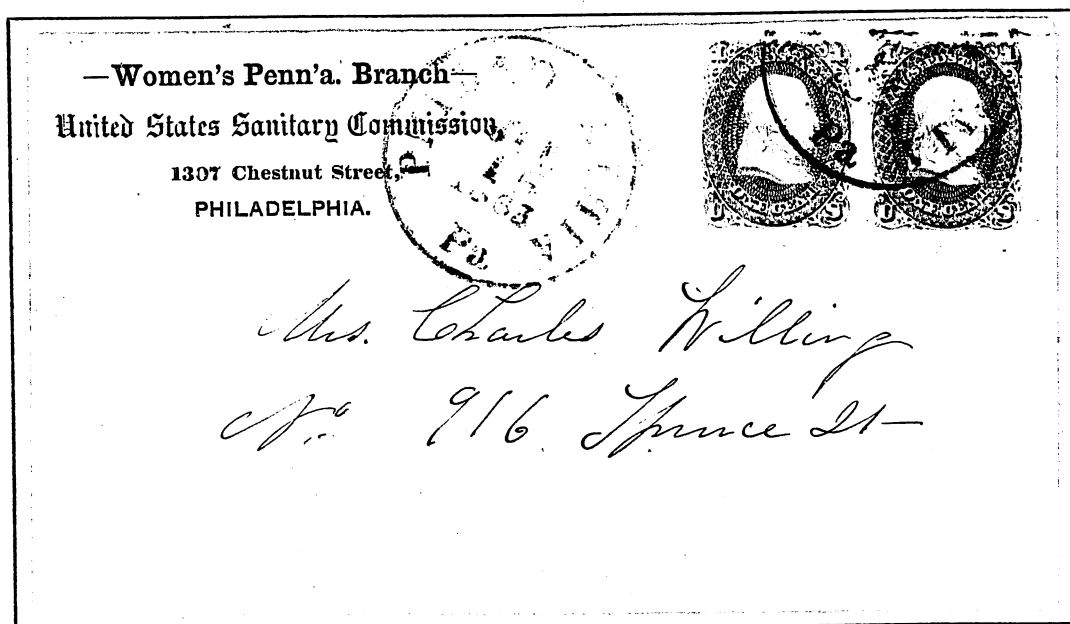 —Women's Penn'a. Branch—
United States Sanitary Commission,
1307 Chestnut Street,
PHILADELPHIA.
1863
Pa.
Pa
U ONE CENT S
U ONE CENT S
Mrs. Charles Willing
No. 916 Spruce St—